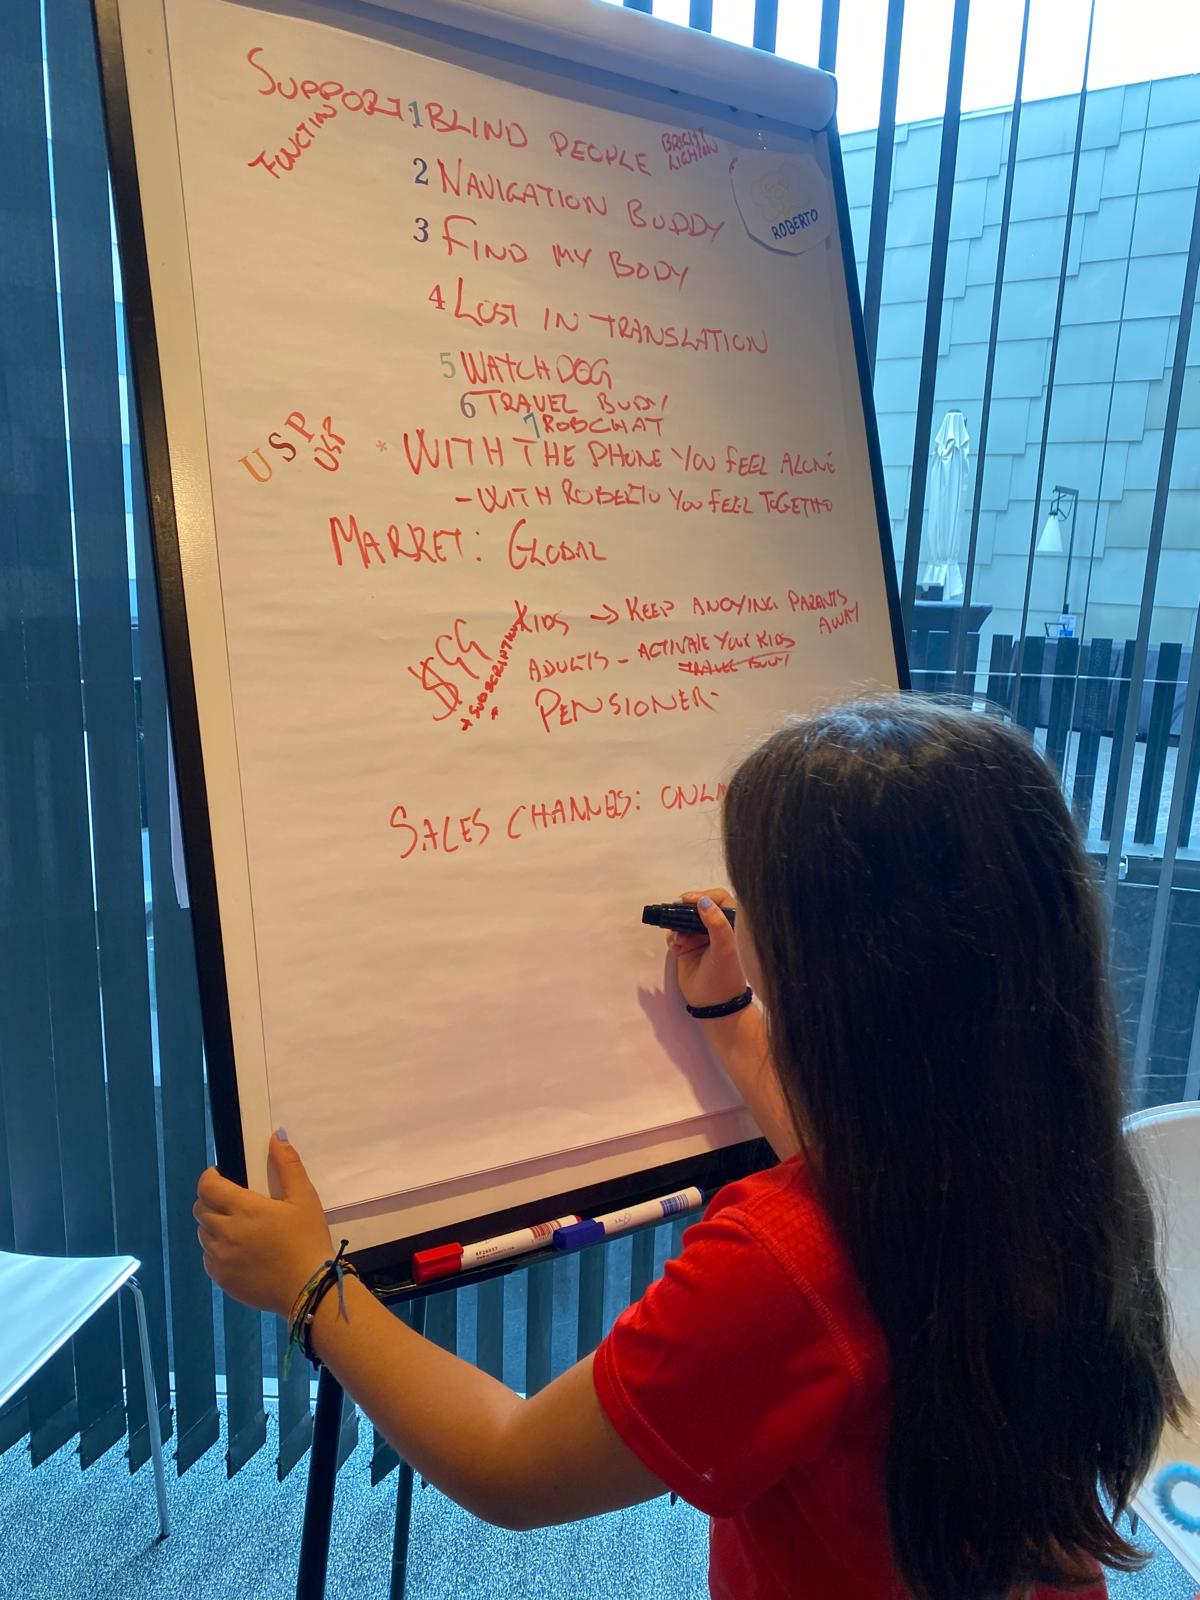 SUPPORT: 1 BLIND PEOPLE
FUNCTIN
BRIGHT
LIGHTON
2 NAVIGATION BUDDY
ROBERTO
3 FIND MY BODY
4 LOST IN TRANSLATION
5 WATCHDOG
6 TRAVEL BUDY
7 ROBCHAT
USP
USP
* WITH THE PHONE YOU FEEL ALONE
- WITH ROBERTO YOU FEEL TOGETHO
MARKET: GLOBAL
$GG
* SUBSCRIPTION *
KIDS → KEEP ANOYING PARENTS
AWAY
ADULTS - ACTIVATE YOUR KIDS
PENSIONER
SALES CHANNELS: ONLI